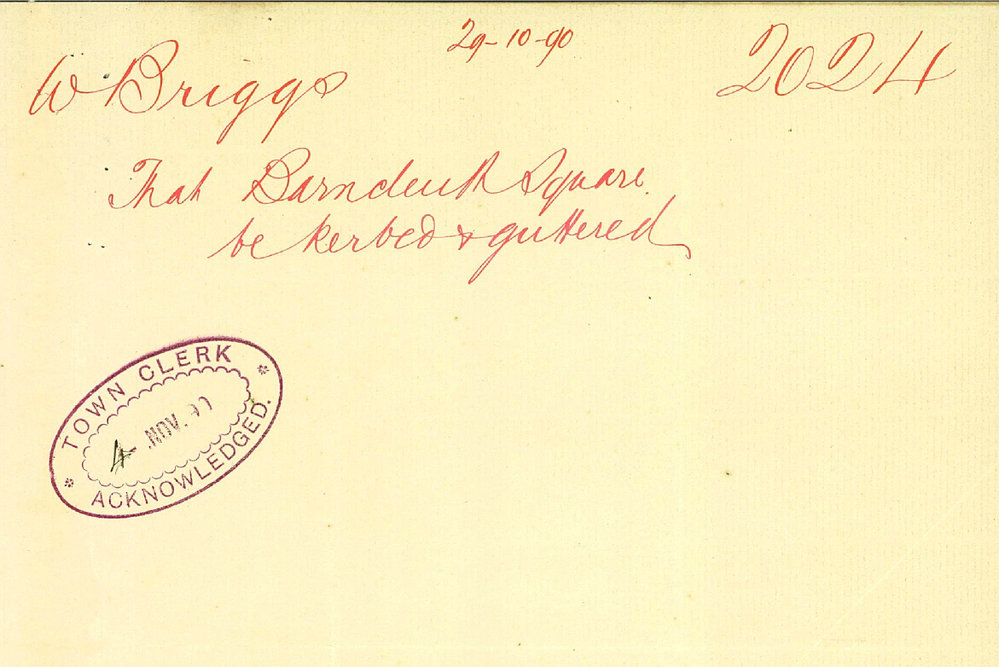 29-10-90
W Briggs
2024
That Square
be kerbed & guttered
TOWN CLERK
4 NOV. 90
ACKNOWLEDGED.